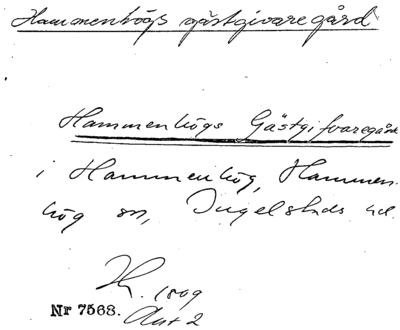 Hammenhögs gästgivaregård
Hammenhögs Gästgifvaregård
i Hammenhög, Hammen-
hög sn, Ingelstads hd.
1809
Nr 7568. Akt 2